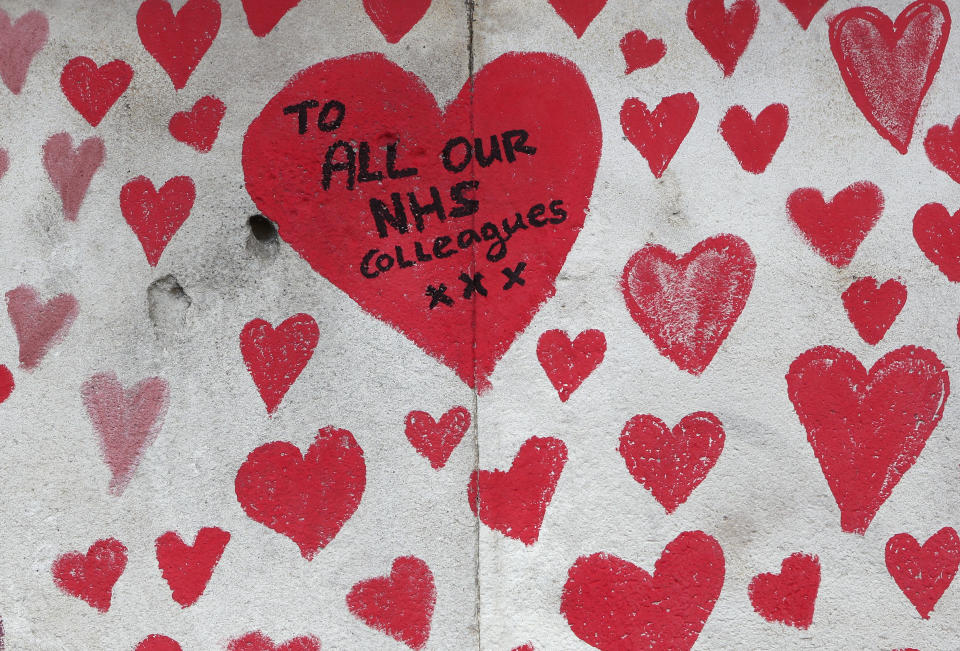 TO
ALL OUR
NHS
Colleagues
x x x